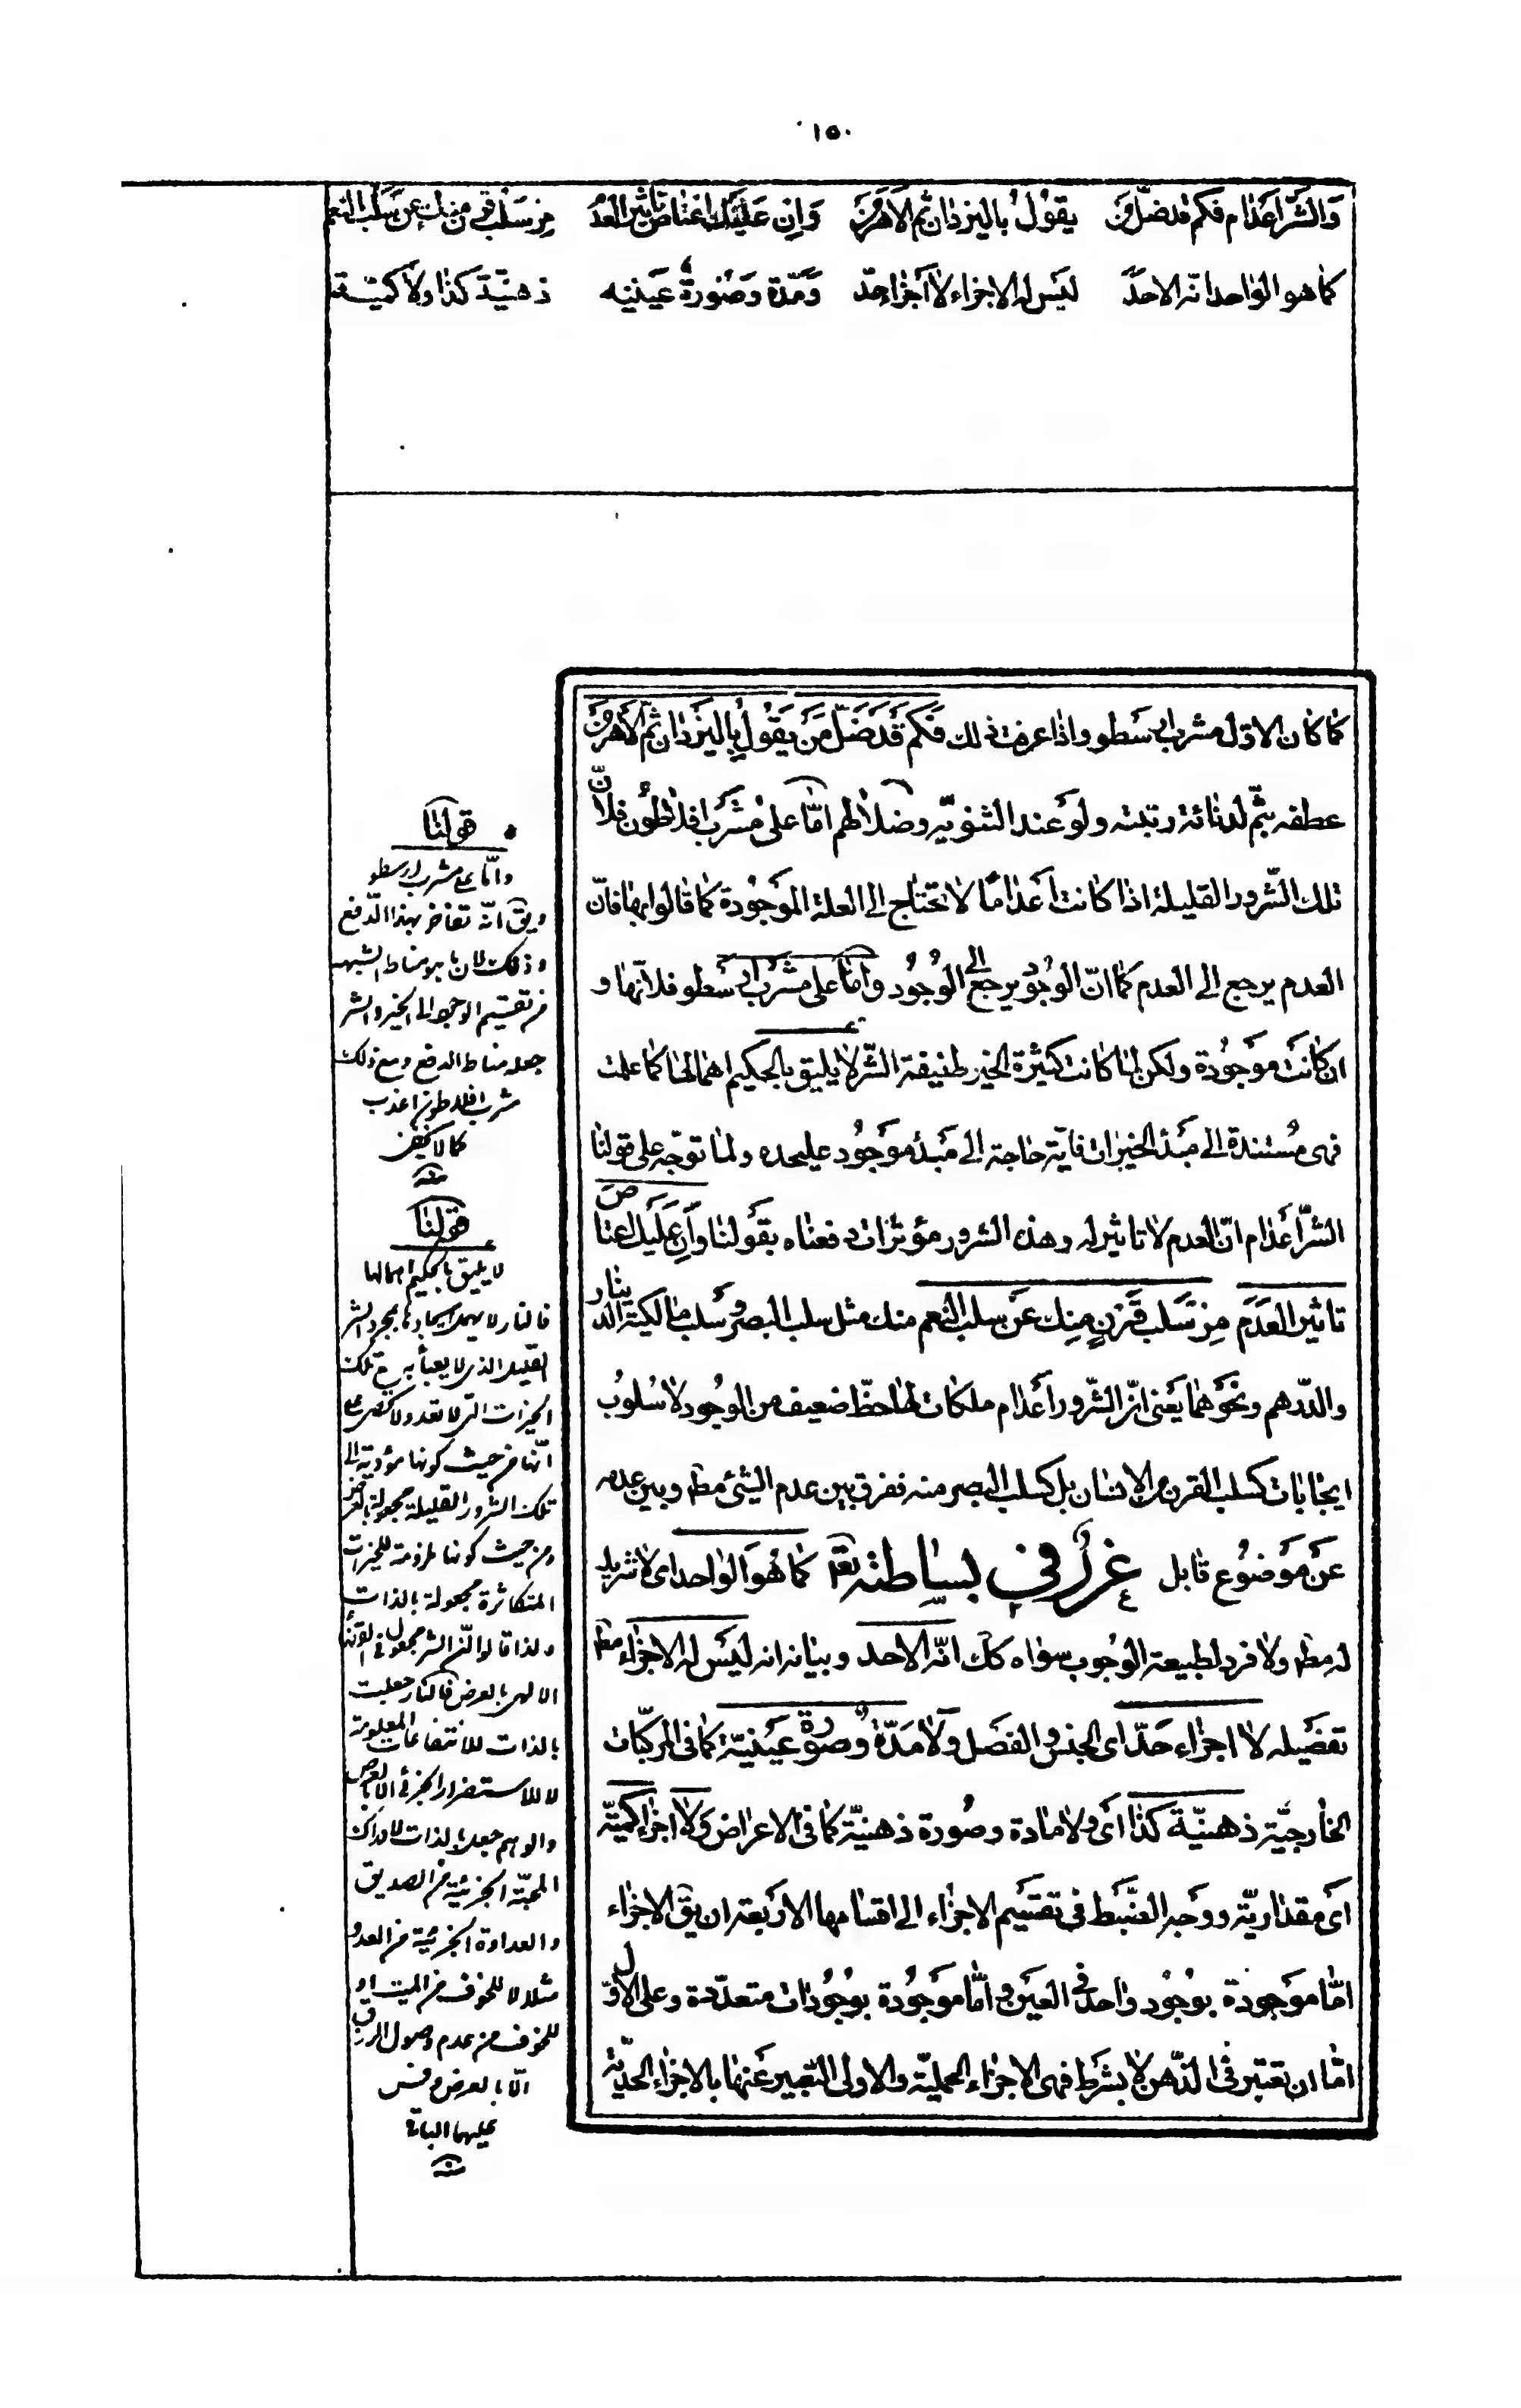 ١٥٠
والشر اعدام فكم قد ضل من يقول باليزدان ثم الاهرمن وان عليك اعتاص تاثير العدم من سلب قرن منك عن سلب النعم
كما هو الواحد انه الاحد ليس له الاجزاء لا اجزاء حد ومدة وصورة عينيه ذهنية كذا ولا كمية
كما كان الاول مشرب ارسطو واذا عرفت ذلك فَكم قَد ضلّ مَن يَقولُ بِاليَزدان ثمّ الاَهرمَن
عطفه بثمّ لدنائة رتبته ولو عند الثنويّه وضلالهم امّا على مشرب افلاطون فلانّ
تلك الشّرور القليلة اذا كانت اعداماً لا تحتاج الى العلة الموجودة كما قالوا بها فانّ
العدم يرجع الى العدم كما انّ الوجود يرجع الى الوجود وامّا على مشرب ارسطو فلانّها و
ان كانت موجودة ولكن لما كانت كثيرة الخير طفيفة الشّر لا يليق بالحكيم اهمالها كما علمت
فهى مستندة الى مبدء الخيرات فاية حاجة الى مبدء موجود عليحده ولما توجّه على قولنا
الشّر اعدام انّ العدم لا تاثير له وهذه الشرور مؤثرات دفعناه بقولنا وَاِن عَلَيك اعتاص
تاثير العَدَم مِن سَلب قَرنٍ مِنك عَن سلب النعم منك مثل سلب البصر وسلب مالكية الدينار
والدّرهم ونحوهما يعنى انّ الشّرور اعدام ملكات لها حظّ ضعيف من الوجود لا سلوب
ايجابات كسلب القرن عن الانسان بل كسلب البصر منه ففرق بين عدم الشيئ مط وبين عدمه
عن موضوع قابل غرر في بساطته تع كما هو الواحد اى لا شريك
له مط ولا فرد لطبيعة الوجوب سواه كك انّه الاحد وبيانه انه ليس له الاجزاء مط
تفصيله لا اجزاء حَدّ اى الجنس والفصل ولا مَدّة وصورة عينيّة كما فى المركّبات
الخارجيّة ذهنيّة كذا اى ولا مادة وصورة ذهنيّة كما فى الاعراض ولا اجزاء كميّة
اى مقداريّة ووجه الضّبط فى تقسيم الاجزاء الى اقسامها الاربعة ان يق الاجزاء
امّا موجودة بوجود واحد فى العين وامّا موجودة بوجودات متعدّدة وعلى الاوّل
امّا ان تعتبر فى الذّهن لا بشرط فهى الاجزاء الحملية والاولى التعبير عنها بالاجزاء الحدّية
قولنا
وامّا على مشرب ارسطو
ويق انّه تفاخر بهذا الدّفع
وذلك لان ما هو مناط الشبهه
من تقسيم الوجود الى الخير والشر
جعله مناط الدفع ومع ذلك
مشرب افلاطون اعذب
كما لا يخفى
منه
قولنا
لا يليق بالحكيم اهمالها
فالنار لا يهمل ايجادها بمجرد الشر
القليل الذى لا يعبأ به مع تلك
الخيرات التى لا تعد ولا تحصى على
انّها من حيث كونها مؤدية الى
تلك الشرور القليلة مجعولة بالعرض
ومن حيث كونها ملزومة للخيرات
المتكاثرة مجعولة بالذات
ولذا قالوا انّ الشر مجعول فى القضاء
الالهى بالعرض فالنار جعلت
بالذات للانتفاعات المعلومة
لا للاستضرار الجزئى الا بالعرض
والوهم جعل بالذات لادراك
المحبّة الجزئية من الصديق
والعداوة الجزئية من العدو
مثلا لا للخوف من الميت او
للخوف من عدم وصول الرزق
الّا بالعرض وقس
عليهما البواقى
منه